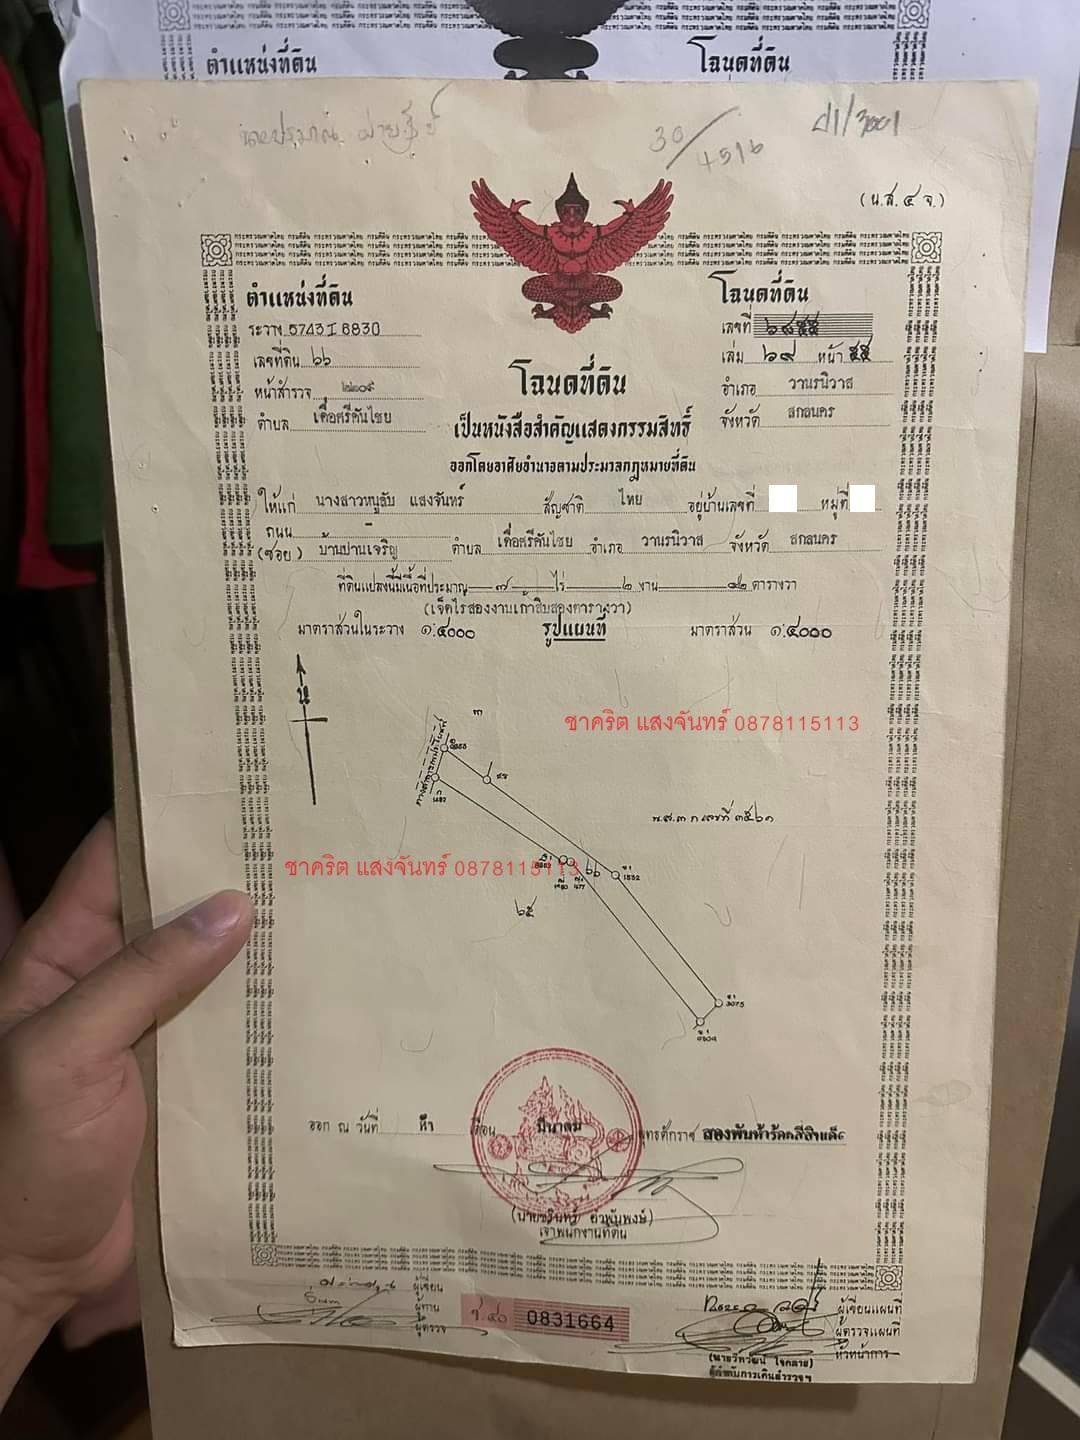 ตำแหน่งที่ดิน
โฉนดที่ดิน
30/4516
(น.ส.๔ จ.)
ตำแหน่งที่ดิน
ระวาง 5743 I 6830
เลขที่ดิน ๖๖
หน้าสำรวจ ๒๒๐๙
ตำบล เดื่อศรีคันไชย
โฉนดที่ดิน
เลขที่ ๖๘๕๕
เล่ม ๖๙ หน้า ๕๕
อำเภอ วานรนิวาส
จังหวัด สกลนคร
โฉนดที่ดิน
เป็นหนังสือสำคัญแสดงกรรมสิทธิ์
ออกโดยอาศัยอำนาจตามประมวลกฎหมายที่ดิน
ให้แก่ นางสาวหนูลับ แสงจันทร์ สัญชาติ ไทย อยู่บ้านเลขที่ หมู่ที่
ถนน -
(ซอย) บ้านปานเจริญ ตำบล เดื่อศรีคันไชย อำเภอ วานรนิวาส จังหวัด สกลนคร
ที่ดินแปลงนี้มีเนื้อที่ประมาณ ๗ ไร่ ๒ งาน ๙๒ ตารางวา
(เจ็ดไร่สองงานเก้าสิบสองตารางวา)
มาตราส่วนในระวาง ๑:๔๐๐๐ รูปแผนที่ มาตราส่วน ๑:๔๐๐๐
น
ชาคริต แสงจันทร์ 0878115113
ทางสาธารณประโยชน์
น.ส.๓ ก เลขที่ ๓๕๖๑
ชาคริต แสงจันทร์ 0878115113
๖๖
๖๕
3075
ออก ณ วันที่ ห้า เดือน มีนาคม พุทธศักราช สองพันห้าร้อยสี่สิบเอ็ด
เจ้าพนักงานที่ดิน
ผู้เขียน
ผู้ทาน
ผู้ตรวจ
ช ๔๐ 0831664
ผู้เขียนแผนที่
ผู้ตรวจแผนที่
หัวหน้าการ
(นายวีทวัฒน์ ใจกลาง)